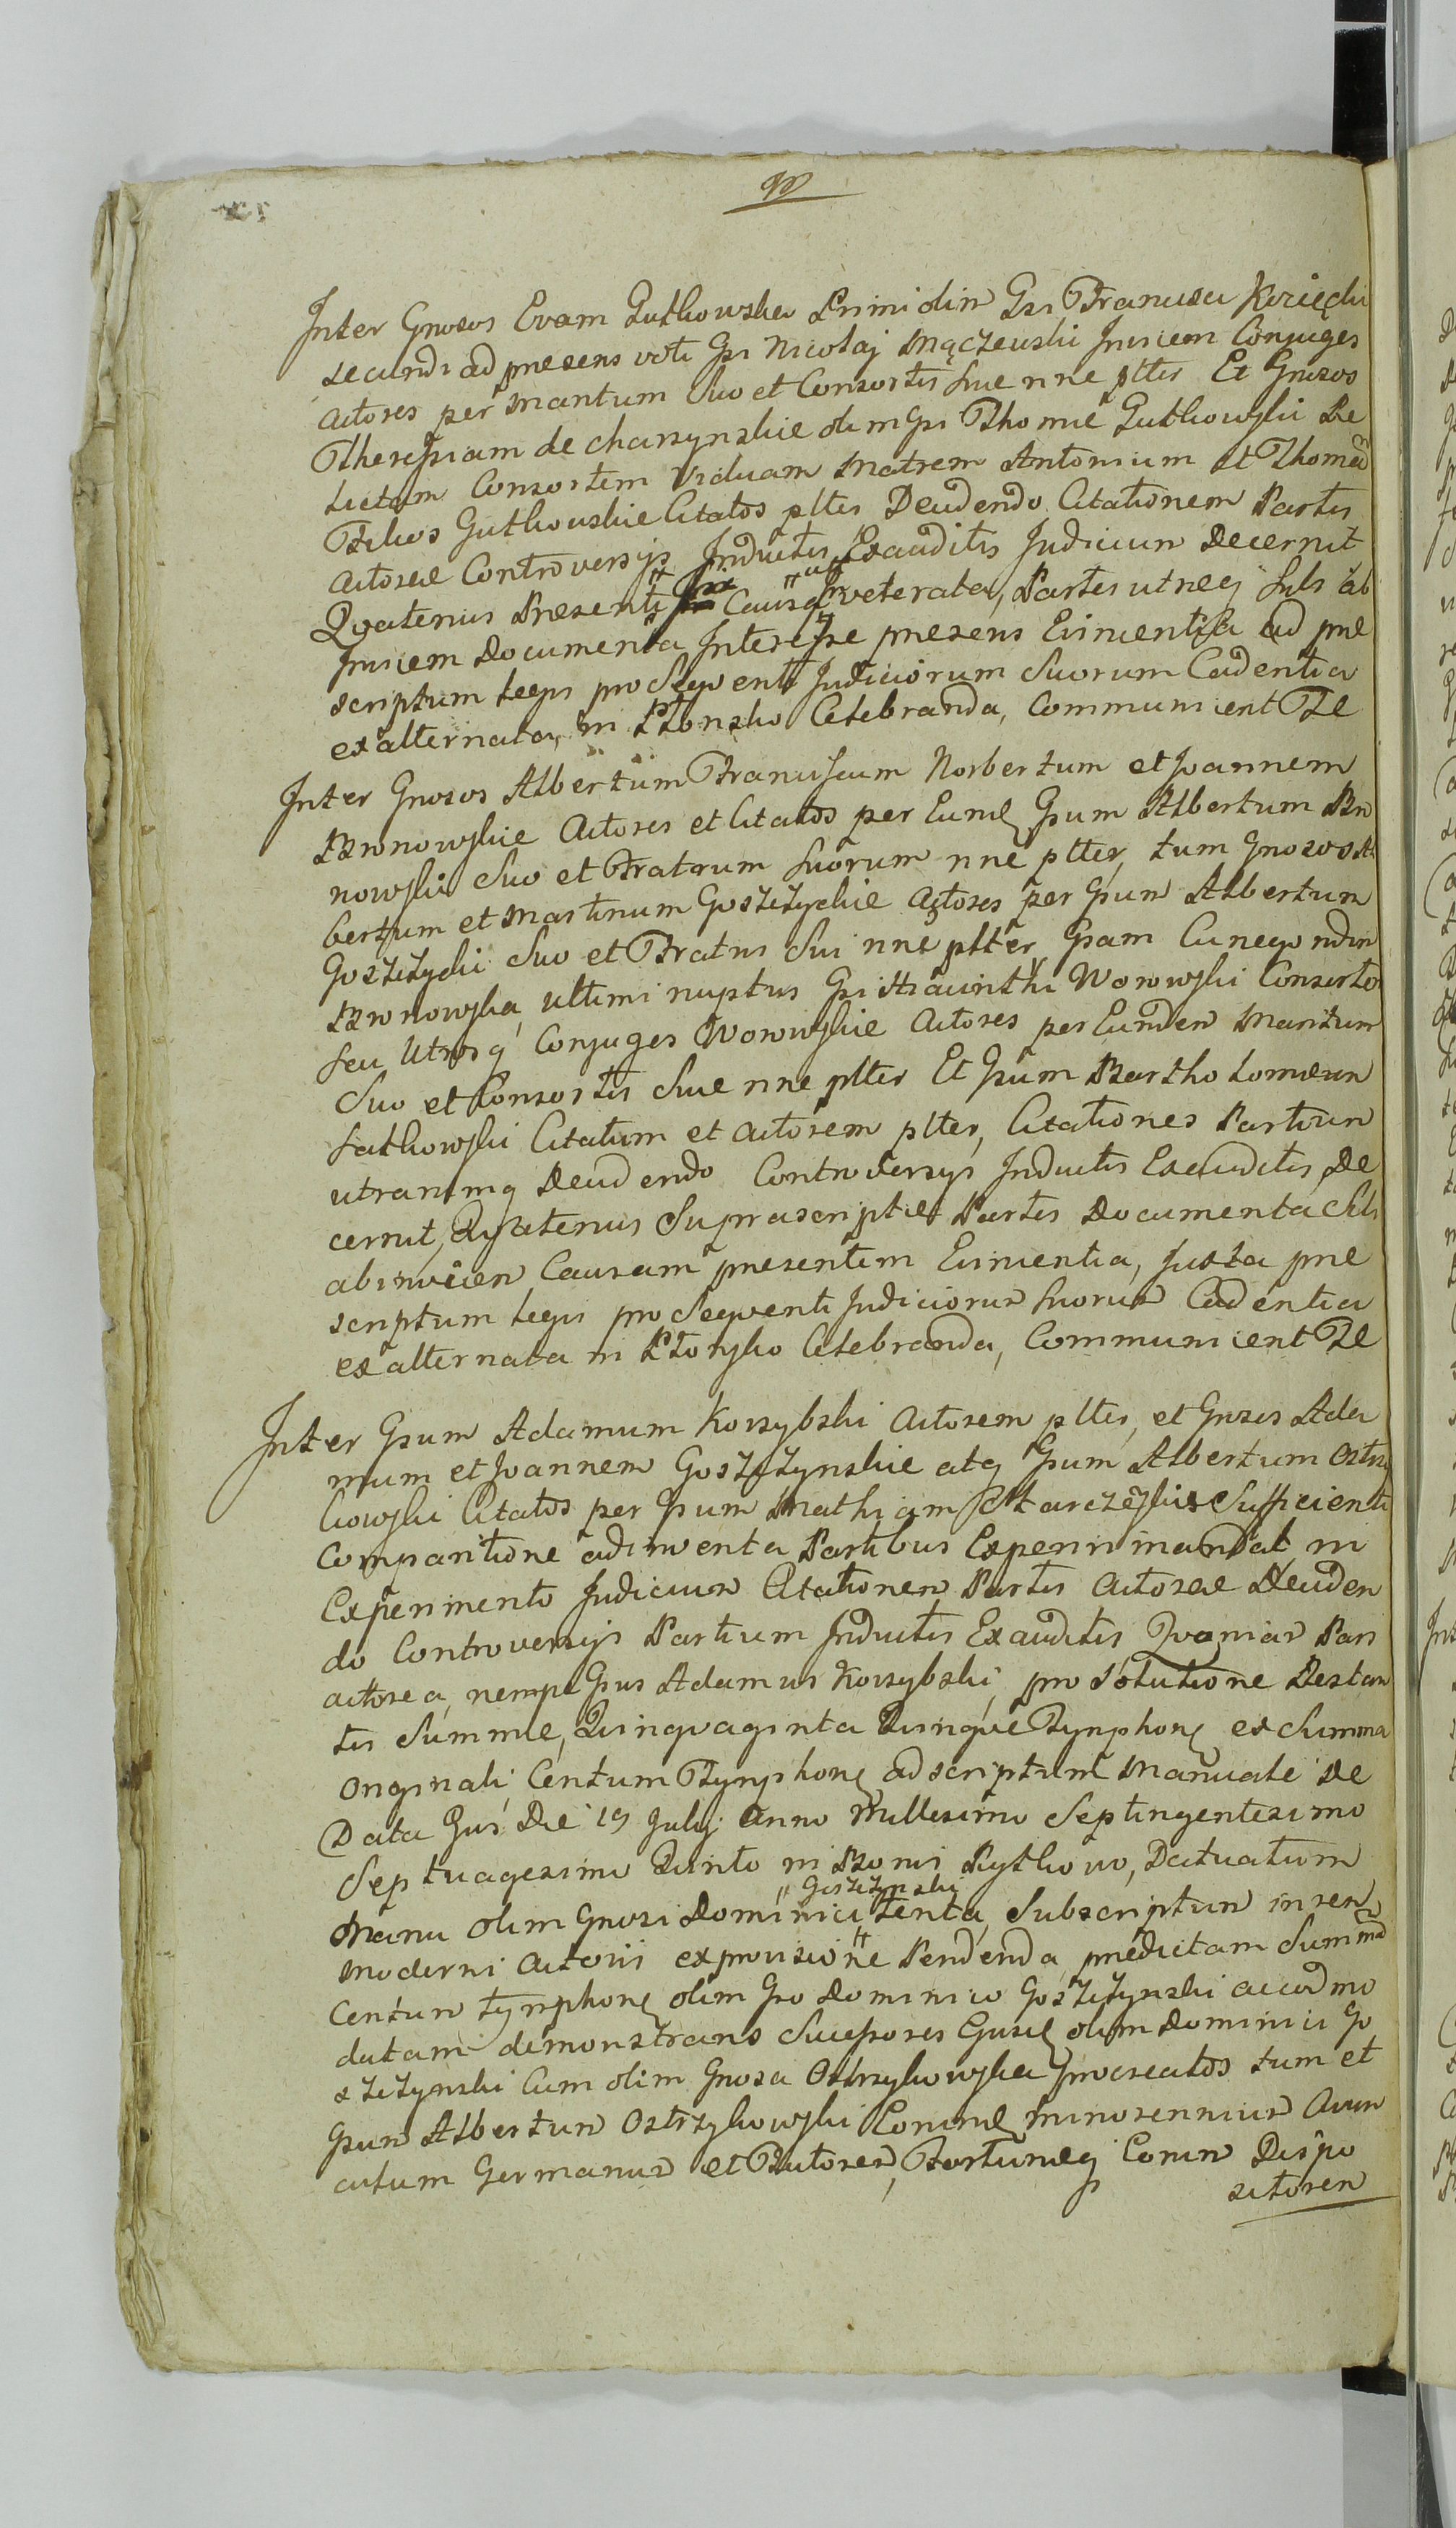 Inter Gnosos Evam Gutkowska Primi olim Gsi Francisci Kozięcki
secundi ad praesens voti Gsi Nicolaj Mączewski Invicem Conjuges
actores per Maritum Suo et Consortis Suae nne pltes Et Gnosos
Theressiam de Charzynskie olim Gsi Thomae Gutkowski Re
lictam Consortem Viduam Matrem Antonium et Thomam
Filios Gutkowskie Citatos pltes Decidendo Citationem Partis
actoreae Controversijs Inductis Exauditis Judicium Decernit
Quatenus Praesenti Causa Inveterata, Partes utraeq Sibi ab
Invicem Documenta Interesse praesens Evincentia ad prae
scriptum Legis pro Sequenti Judiciorum Suorum Cadentia
ex alternata, in Płonsko Celebranda, Communicent De
Inter Gnosos Albertum Franciscum Norbertum et Joannem
Bronowskie Actores et Citatos per Eund Gsum Albertum Bro
nowski Suo et Fratrum Suorum nne plter, tum Gnosos Al
bertum et Martinum Goszczyckie Actores per Gsum Albertum
Goszczycki Suo et Fratris Sui nne plter, Gsam Cunegondim
Bronowska, ultimi nuptus Gsi Hiacinthi Worowski Consortem
seu Utrosq Conjuges Worowskie Actores per Eundem Maritum
Suo et Consortis Suae nne plter Et Gsum Bartholomaeum
Lathowski Citatum et actorem plter, Citationes Partium
utrarumq Decidendo Controversijs Inductis Exauditis De
cernit, Quatenus Suprascriptae Partes Documenta Sibi
abinvicem Causam praesentem Evincentia, Juxta prae
scriptum Legis pro Sequenti Judiciorum Suorum Cadentia
ex alternata in Płonsko Celebranda, Communicent De
Inter Gsum Adamum Korzybski Actorem plter, et Gnosos Ada
mum et Joannem Goszczynskie atq Gsum Albertum Ostrzy
kowski Citatos per Gsum Mathiam Starczewski Sufficienti
Comparitione adinventa Partibus Experiri mandat, in
Experimento Judicium Citationem Partis Actoreae Deciden
do Controversijs Partium Inductis Exauditis Quoniam Pars
actorea, nempe Gsus Adamus Korzybski, pro Solutione Restan
tis Summae, Quinquaginta Quinque Tynphon ex Summa
originali, Centum Tynphon ad scriptum Manuale de
Data Gus Die 19 Julij Anno Millesimo Septingentesimo
Septuagesimo Quinto in Bonis Rytkowo, Datuatum
Manu olim Gnosi Dominici Goszczynski tenta, Subscriptum in rem
Moderni Actoris ex provisione Pendenda, praedictam Summa
Centum tynphon olim Gso Dominico Goszczynski accomo
datam demonstrans Successores Gusd olim Dominici Go
szczynski Cum olim Gnosa Ostrzykowska procreatos tum et
Gsum Albertum Ostrzykowski Eorund minorennium Avun
culum Germanum et Tutorem, Fortunaeq Eorum Dispo
sitorem